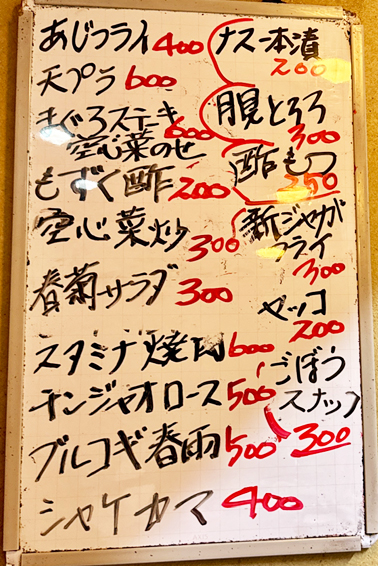 あじフライ 400
天プラ 600
まぐろステーキ
空心菜のせ 600
もずく酢 200
空心菜炒 300
春菊サラダ 300
スタミナ焼肉 600
チンジャオロース 500
プルコギ春雨 500
シャケカマ 400
ナス一本漬
200
月見とろろ
300
酢もつ
250
新ジャガ
フライ
300
ヤッコ
200
ごぼう
スナック
300